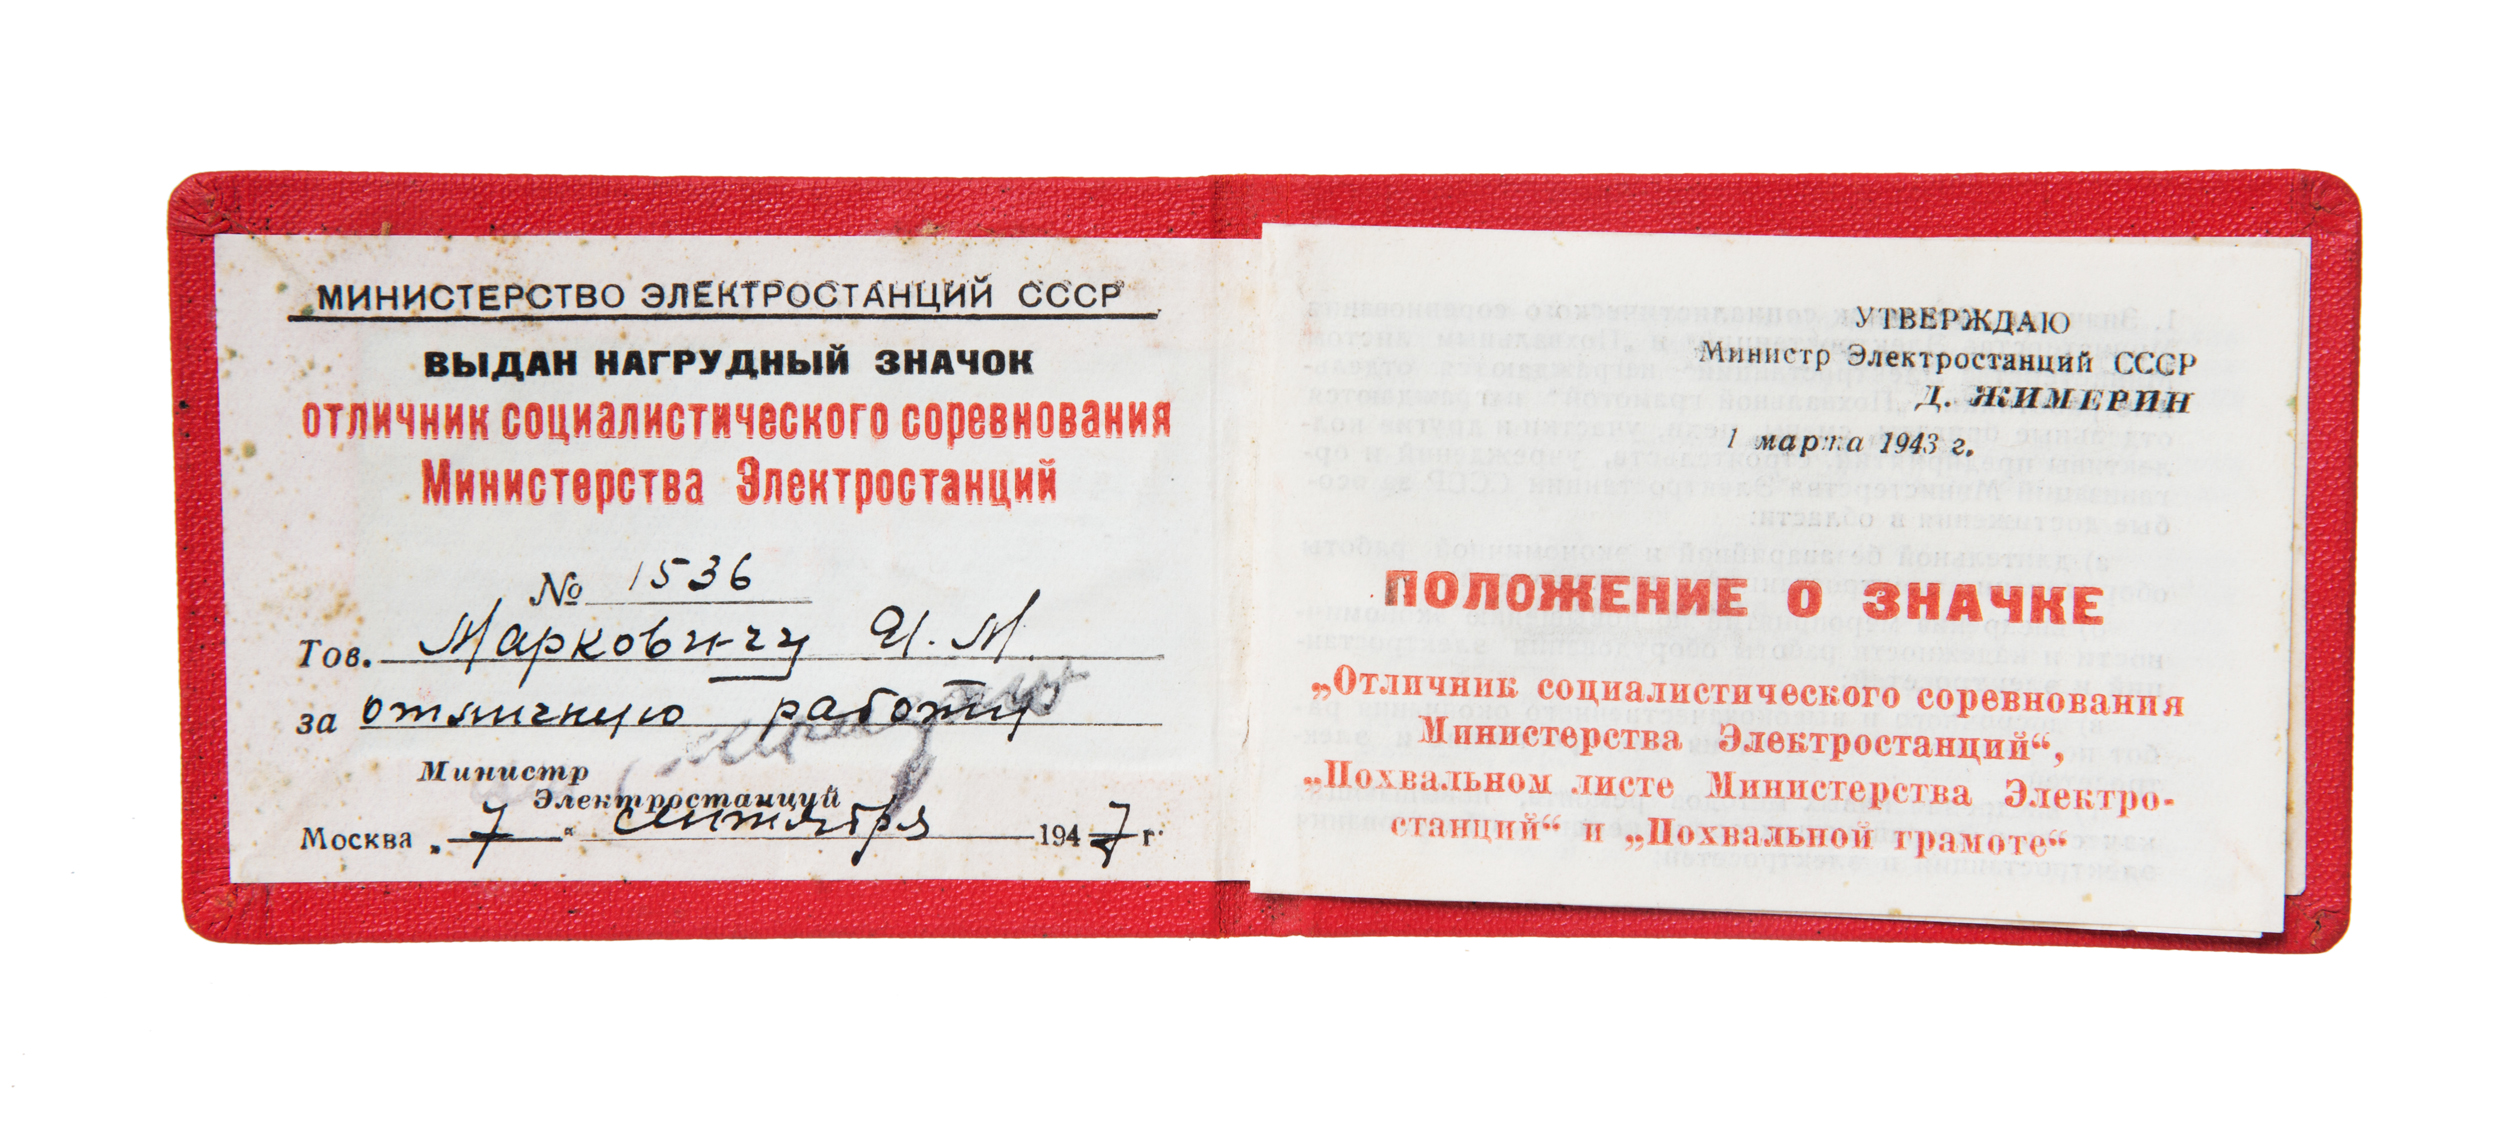 МИНИСТЕРСТВО ЭЛЕКТРОСТАНЦИЙ СССР
ВЫДАН НАГРУДНЫЙ ЗНАЧОК
отличник социалистического соревнования
Министерства Электростанций
№ 1536
Тов. Марковичу И. М.
за отличную работу
Министр
Электростанций
Москва „7“ сентября 1947 г.
УТВЕРЖДАЮ
Министр Электростанций СССР
Д. ЖИМЕРИН
1 марта 1943 г.
ПОЛОЖЕНИЕ О ЗНАЧКЕ
„Отличник социалистического соревнования
Министерства Электростанций“,
„Похвальном листе Министерства Электро-
станций“ и „Похвальной грамоте“